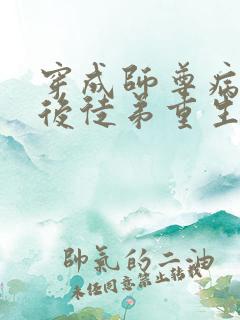 穿成師尊病
後徒弟重生
帥氣的二油
未經同意禁止轉載